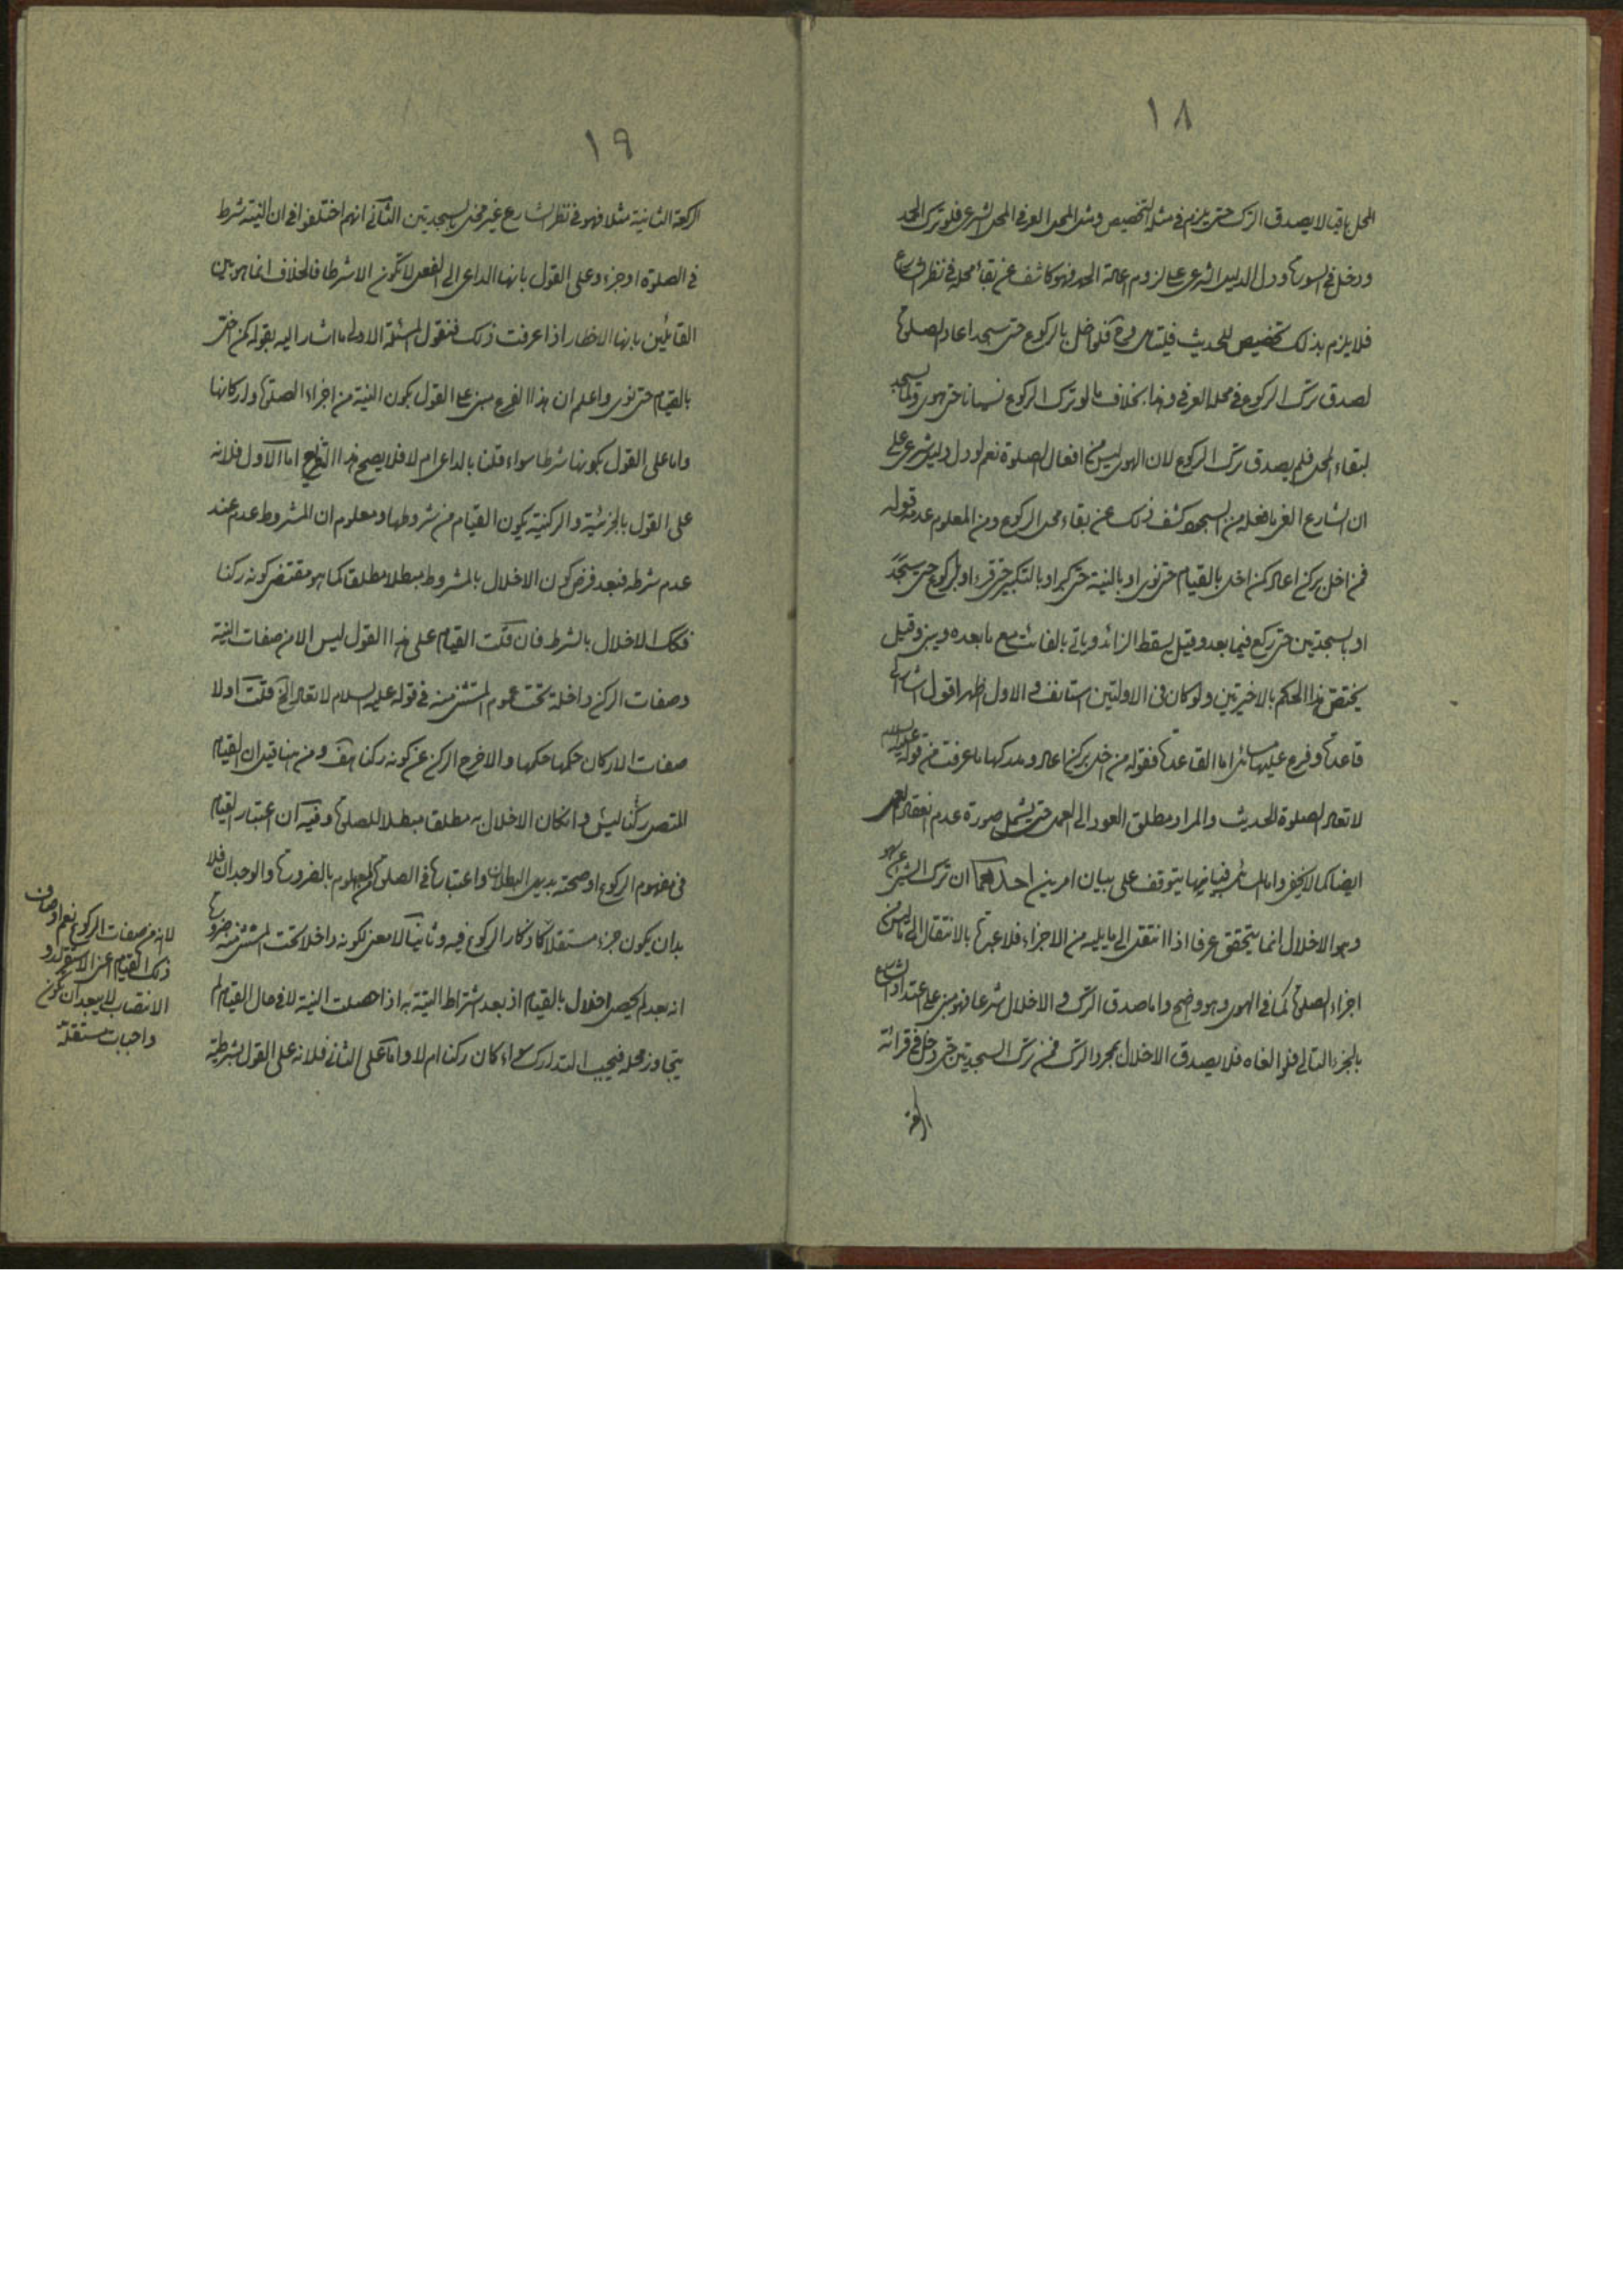 ١٨
المحل باقيا لا يصدق الترك حتى يلزم في مثله التخصيص ومثل المحل العرفي المحل الشرعي فلو ترك الحمد
ودخل في السورة ودل الدليل الشرعي على لزوم اعادة الحمد فهو كاشف عن بقاء محله في نظر الشارع
فلا يلزم بذلك تخصيص للحديث فليتامل وح فلو اخل بالركوع حتى سجد اعاد الصلوة
لصدق ترك الركوع في محله العرفي وهذا بخلاف ما لو ترك الركوع نسيانا حتى هوى ولما يسجد
لبقاء المحل فلم يصدق ترك الركوع لان الهوى ليس من افعال الصلوة نعم لو دل دليل شرعي على
ان الشارع الغى ما فعله من السجود كشف ذلك عن بقاء محل الركوع ومن المعلوم عدمه قوله
فمن اخل بركن اعاد كمن اخل بالقيام حتى نوى او بالنية حتى كبر او بالتكبير حتى قرء او بالركوع حتى سجد
او بالسجدتين حتى ركع فيما بعد وقيل يسقط الزائد وياتي بالفائت مع ما بعده ويبني وقيل
يختص هذا الحكم بالاخيرتين ولو كان في الاولتين استانف والاول اظهر اقول اشار الى
قاعدة وفرع عليها مسائل اما القاعدة فقوله من اخل بركن اعاد ومدركها ما عرفت من قوله عليه السلام
لا تعاد الصلوة الحديث والمراد مطلق العود الى العمل حتى يشمل صورة عدم انعقاد العمل
ايضا كما لا يخفى واما المسائل فبيانها يتوقف على بيان امرين احدهما ان ترك الشئ عن سهو
وهو الاخلال انما يتحقق عرفا اذا انتقل الى ما يليه من الاجزاء فلا عبرة بالانتقال الى ما ليس من
اجزاء الصلوة كما في الهوى وهو واضح واما صدق الترك والاخلال شرعا فهو مبني على اعتداد الشارع
بالجزء التالي فلو الغاه فلا يصدق الاخلال بمجرد الترك فمن ترك السجدتين حتى دخل في قرائة
الركعة
١٩
الركعة الثانية مثلا فهو في نظر الشارع غير مخل بالسجدتين الثاني انهم اختلفوا في ان النية شرط
في الصلوة او جزء وعلى القول بانها الداعي الى الفعل لا تكون الا شرطا فالخلاف انما هو بين
القائلين بانها الاخطار اذا عرفت ذلك فنقول المسئلة الاولى ما اشار اليه بقوله كمن اخل
بالقيام حتى نوى واعلم ان هذا الفرع مبني على القول بكون النية من اجزاء الصلوة واركانها
واما على القول بكونها شرطا سواء قلنا بالداعي ام لا فلا يصح هذا التفريع اما الاول فلانه
على القول بالجزئية والركنية يكون القيام من شروطها ومعلوم ان المشروط عدم عند
عدم شرطه فبعد فرض كون الاخلال بالمشروط مبطلا مطلقا كما هو مقتضى كونه ركنا
فكك الاخلال بالشرط فان قلت القيام على هذا القول ليس الا من صفات النية
وصفات الركن داخلة تحت عموم المستثنى منه في قوله عليه السلام لا تعاد الخ قلت اولا
صفات الاركان حكمها حكمها والا خرج الركن عن كونه ركنا هف ومن هنا قيل ان القيام
المتصل بالركوع ليس ركنا وان كان الاخلال به مطلقا مبطلا للصلوة وفيه ان اعتبار القيام
في مفهوم الركوع او صحته بديهي البطلان واعتباره في الصلوة المعلوم بالضرورة والوجدان فلا
بد ان يكون جزء مستقلا كاذكار الركوع فيه وثانيا لا معنى لكونه داخلا تحت المستثنى منه ضرورة
انه بعد لم يحصل اخلال بالقيام اذ بعد اشتراط النية به اذا حصلت النية لا في حال القيام لم
يتجاوز محله فيجب التدارك سواء كان ركنا ام لا واما على الثاني فلانه على القول بشرطية
لانه من صفات الركوع نعم اوصاف
ذلك القيام اعني الاستقرار و
الانتصاب لا يبعد ان تكون
واجبات مستقلة